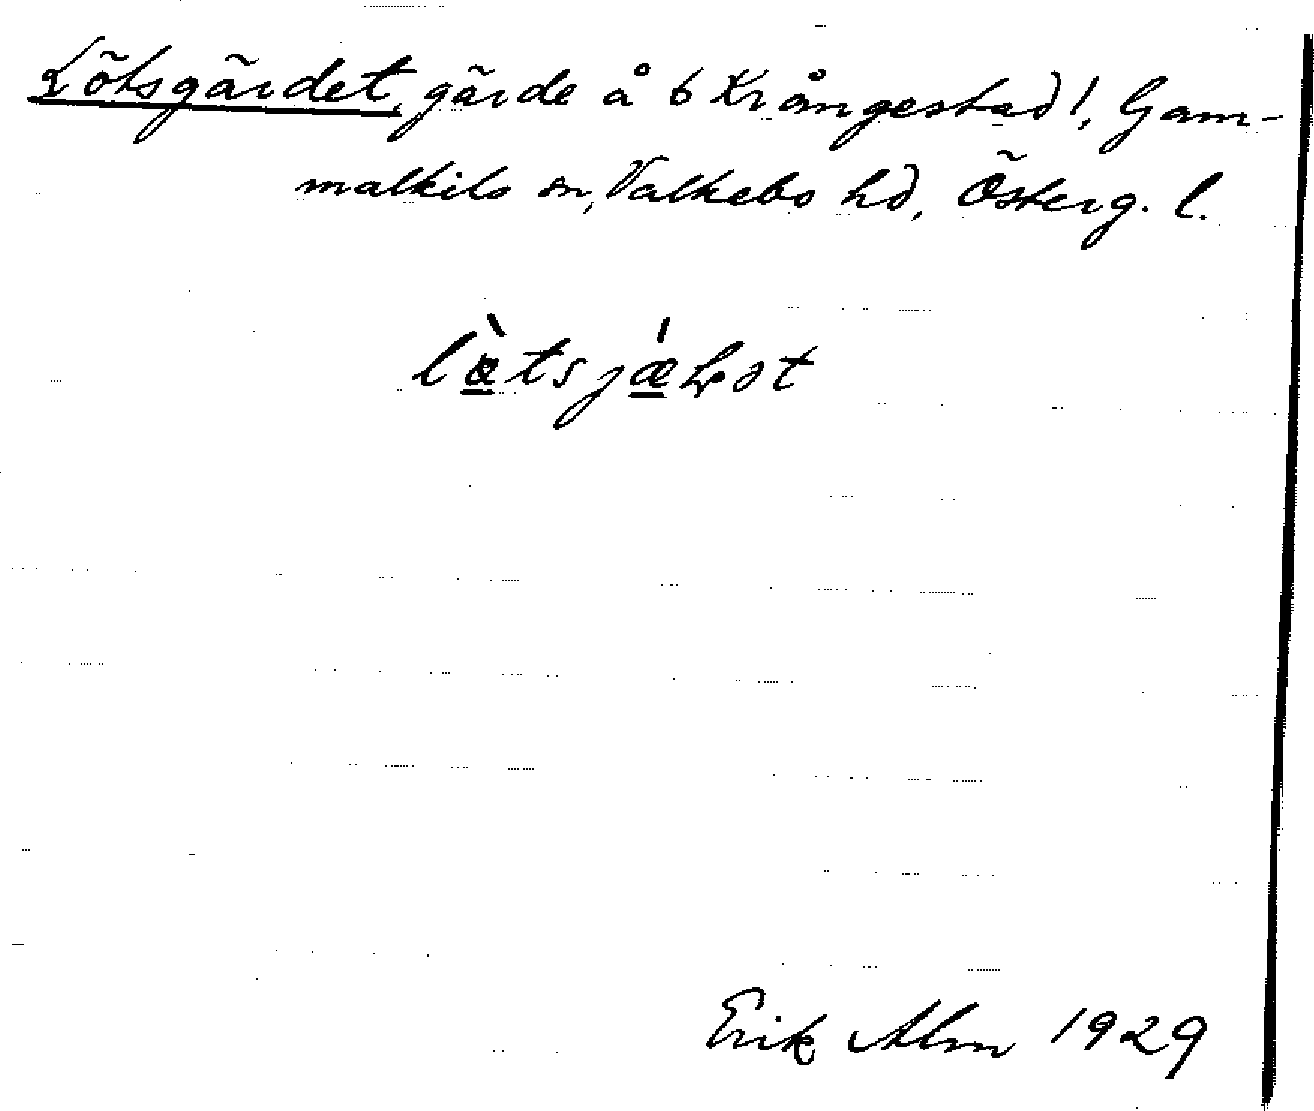 Lötsgärdet, gärde å 6 Krångestad!, Gam-
malkils sn, Valkebo hd, Österg. l.
Erik Alm 1929